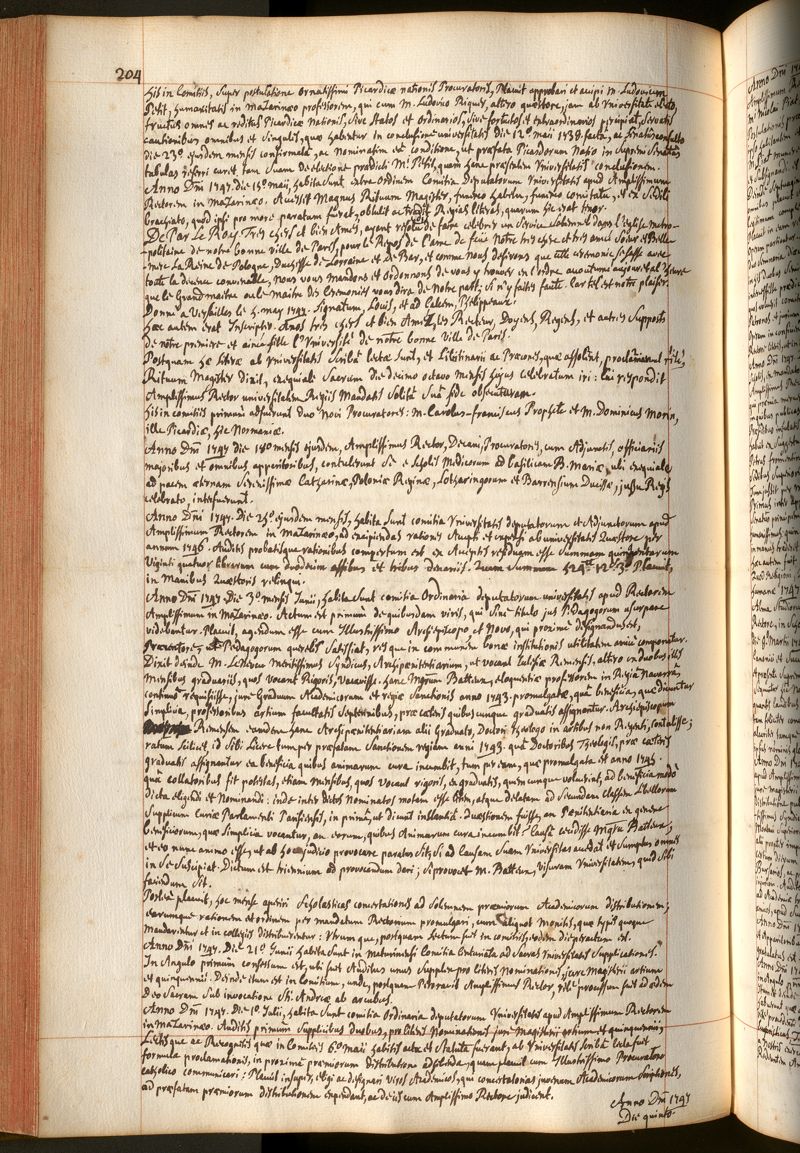 204
His in Comitiis, super postulatione ornatissimi Picardicæ nationis Procuratoris, Placuit approbari et accipi M. Ludovicum
Petit, humanitatis in Mazarinæo professorem, qui cum M. Ludovico Riquet, altero quæstore, jam ab Universitate electo,
fructus omnes ac reditus Picardicæ Nationis, sive statos et ordinarios, sive fortuitos et extraordinarios percipiat, servatis
cautionibus omnibus et singulis, quæ habentur in conclusione universitatis die 12º. maii 1738. facta, ac senatusconsulto
die 23º. ejusdem mensis confirmata, ac nominatim ea conditione, ut præfata Picardorum Natio in supremi Senatus
tabulas referri curet tam suam de electione prædicti Mi. Petit, quam hanc præsentem Universitatis conclusionem.
Anno Dni 1747. die 15º. maii, habita sunt extra ordinem Comitia Deputatorum Universitatis apud Amplissimum
Rectorem in Mazarinæo. Accessit Magnus Rituum Magister, funereo habitu, funereo comitatu, et ex sedili
brachiato, quod ipsi pro more paratum fuerat, obtulit ac tradidit Regias literas, quarum hic erat tenor.
De Par Le Roy Tres chers et bien Amés, ayant resolu de faire celebrer un service solemnel dans l'église metro-
politaine de notre bonne ville de Paris, pour le Repos de l'ame de feue Notre tres chere et tres amée Sœur et Belle
-mere La Reine de Pologne, Duchesse de Lorraine et de Bar, et comme nous desirons que cette ceremonie se fasse avec
toute la decence convenable, nous vous mandons et ordonnons de vous y trouver en l'ordre accoutumé au jour et a l'heure
que le Grand-maitre ou le Maitre des Ceremonies vous dira de Notre part; Si n'y faites faute. Car tel est notre plaisir.
Donné a Versailles le 5. may 1747. Signatum, Louis, et ad Calcem, Phelippeaux.
Hæc autem erat Inscriptio. A nos tres chers et bien Amez, les Recteur, Doyens, Regens, et autres Supposts
de notre premiere et ainée fille l'Université de notre bonne Ville de Paris.
Postquam hæ literæ ab Universitatis Scriba lectæ sunt, et Libitinarii ac Præcones, quæ assolent, proclamarunt,
Rituum Magister dixit, exequiale Sacrum die decimo octavo mensis hujus celebratum iri: Cui respondit
Amplissimus Rector universitatem Regiis Mandatis solita sua fide obsecuturam.
His in comitiis primum adfuerunt duo novi Procuratores: M. Carolus-Franciscus Prophete et M. Dominicus Morin,
ille Picardiæ, hic Normaniæ.
Anno Dni 1747 die 18º mensis ejusdem, Amplissimus Rector, Decani, Procuratores, cum Adjunctis, officiariis
majoribus et omnibus apparitoribus, contulerunt se e scholis Medicorum ad basilicam B. Mariæ, ubi exequiale
ad pacem æternam Serenissimæ Catharinæ, Poloniæ Reginæ, Lotharingorum et Barrensium Ducissæ, jussu Regis
celebrato, interfuerunt.
Anno Dni 1747. Die 25º. ejusdem mensis, habita sunt comitia Universitatis deputatorum et Adjunctorum apud
Amplissimum Rectorem in Mazarinæo, ad excipiendas rationes Accepti et expensi ab universitatis Quæstore per
annum 1746. Auditis probatisque rationibus compertum est ex Acceptis residuam esse summam quingentarum
Viginti quatuor librarum cum duodecim assibus et tribus denariis. Quam summam 524.tt 12.s 3.d Placuit,
in Manibus Quæstoris relinqui.
Anno Dni 1747 Die 3º. mensis Junii, habita sunt comitia Ordinaria deputatorum universitatis apud Rectorem
Amplissimum in Mazarinæo. Actum est primum de quibusdam viris, qui sine titulo jus Pædagogorum usurpare
videbantur. Placuit, agendum esse cum Illustrissimo Archiepiscopo et Novo, qui proxime designandus est,
Præcentore, ut Pædagogorum querelis satisfiat, resque in commodum bonæ institutionis utilitatem amice componatur.
Dixit deinde M. Le Neveu meritissimus Syndicus, Archipœnitentiarium, ut vocant Ecclesiæ Remensis, altero e duobus, iis
Mensibus graduariis, quos vocant Rigoris, Vacavisse. Hanc Mgrum Batteux, eloquentiæ professorem in Regia Navarra,
continuo requisiisse, jure Graduum Academicorum et regiæ Sanctionis anno 1743. promulgatæ, qua beneficia, quæ dicuntur
Simplicia, professoribus artium facultatis Septennibus, præ cæteris quibuscunque graduatis assignantur. Archiepiscopum
Remensem eandem hanc Archipœnitentiariam alii Graduato, Doctori Theologo in artibus non Regenti, contulisse;
ratum scilicet, id sibi licere tum per præfatam Sanctionem regiam anni 1743. qua Doctoribus Theologis, præ cæteris
graduatis assignantur ea beneficia quibus animarum cura incumbit, tum per eam, quæ promulgata est anno 1745.
qua collatoribus fit potestas, etiam mensibus, quos vocant rigoris, ex graduatis, quemcunque voluerint, ad beneficia modo
dicta eligendi et Nominandi: inde inter dictos Nominatos motam esse litem, atque delatam ad secundam classem Libellorum
Supplicum Curiæ Parlamenti Parisiensis, in prima, ut dicunt instantia. Quæstionem fuisse, an Pœnitentiaria ex genere
beneficiorum, quæ simplicia vocantur, an eorum, quibus Animarum cura incumbit. Causa cecidisse Mgrum Batteux,
et eo nunc animo esse, ut ab hoc judicio provocare paratus sit, si ad causam suam Universitas accedat et sumptus omnes
in se suscipiat. Dictum est triennium ad provocandum dari; si provocet M. Batteux, visuram Universitatem, quid sibi
faciendum sit.
Postea placuit, hoc mense aperiri Scholasticas concertationes ad solemnem præmiorum Academicorum distributionem;
earumque rationem et ordinem per mandatum Rectorium promulgari, cum aliquot monitis, quæ typis quoque
mandarentur et in collegiis distribuerentur: Utrumque, postquam lectum fuit in comitiis, eodem die peractum est.
Anno Dni 1747. Die 21º. Junii habita sunt in Maturinensi Comitia Centuriata ad sacras Universitatis Supplicationes.
In Angulo primum consessum est, ubi fuit Auditus unus Supplex pro literis Nominationis, jure Magisterii artium
et quinquennii. Deinde itum est in Comitium, unde, postquam Peroravit Amplissimus Rector, rite processum fuit ad ædem
Deo Sacram sub invocatione Sti. Andreæ ab arcubus.
Anno Dni 1747. Die 1º. Julii, habita sunt comitia ordinaria deputatorum Universitatis apud Amplissimum Rectorem
in Mazarinæo. Auditis primum supplicibus duobus, pro literis Nominationis jure Magisterii artium et quinquennii,
Lectisque ac Recognitis quæ in Comitiis 6º. maii habitis acta et statuta fuerant, ab Universitatis scriba lecta fuit
formula proclamationis, in proxime præmiorum distributione adhibenda, quam placuit cum Illustrissimo Procuratore
catholico communicari: Placuit insuper, eligi ac designari viros Academicos, qui concertatorias juvenum Academicorum scriptiones,
ad præfatam præmiorum distributionem expendant, ac de iis cum Amplissimo Rectore judicent.
Anno Dni 1747
Die quinto.